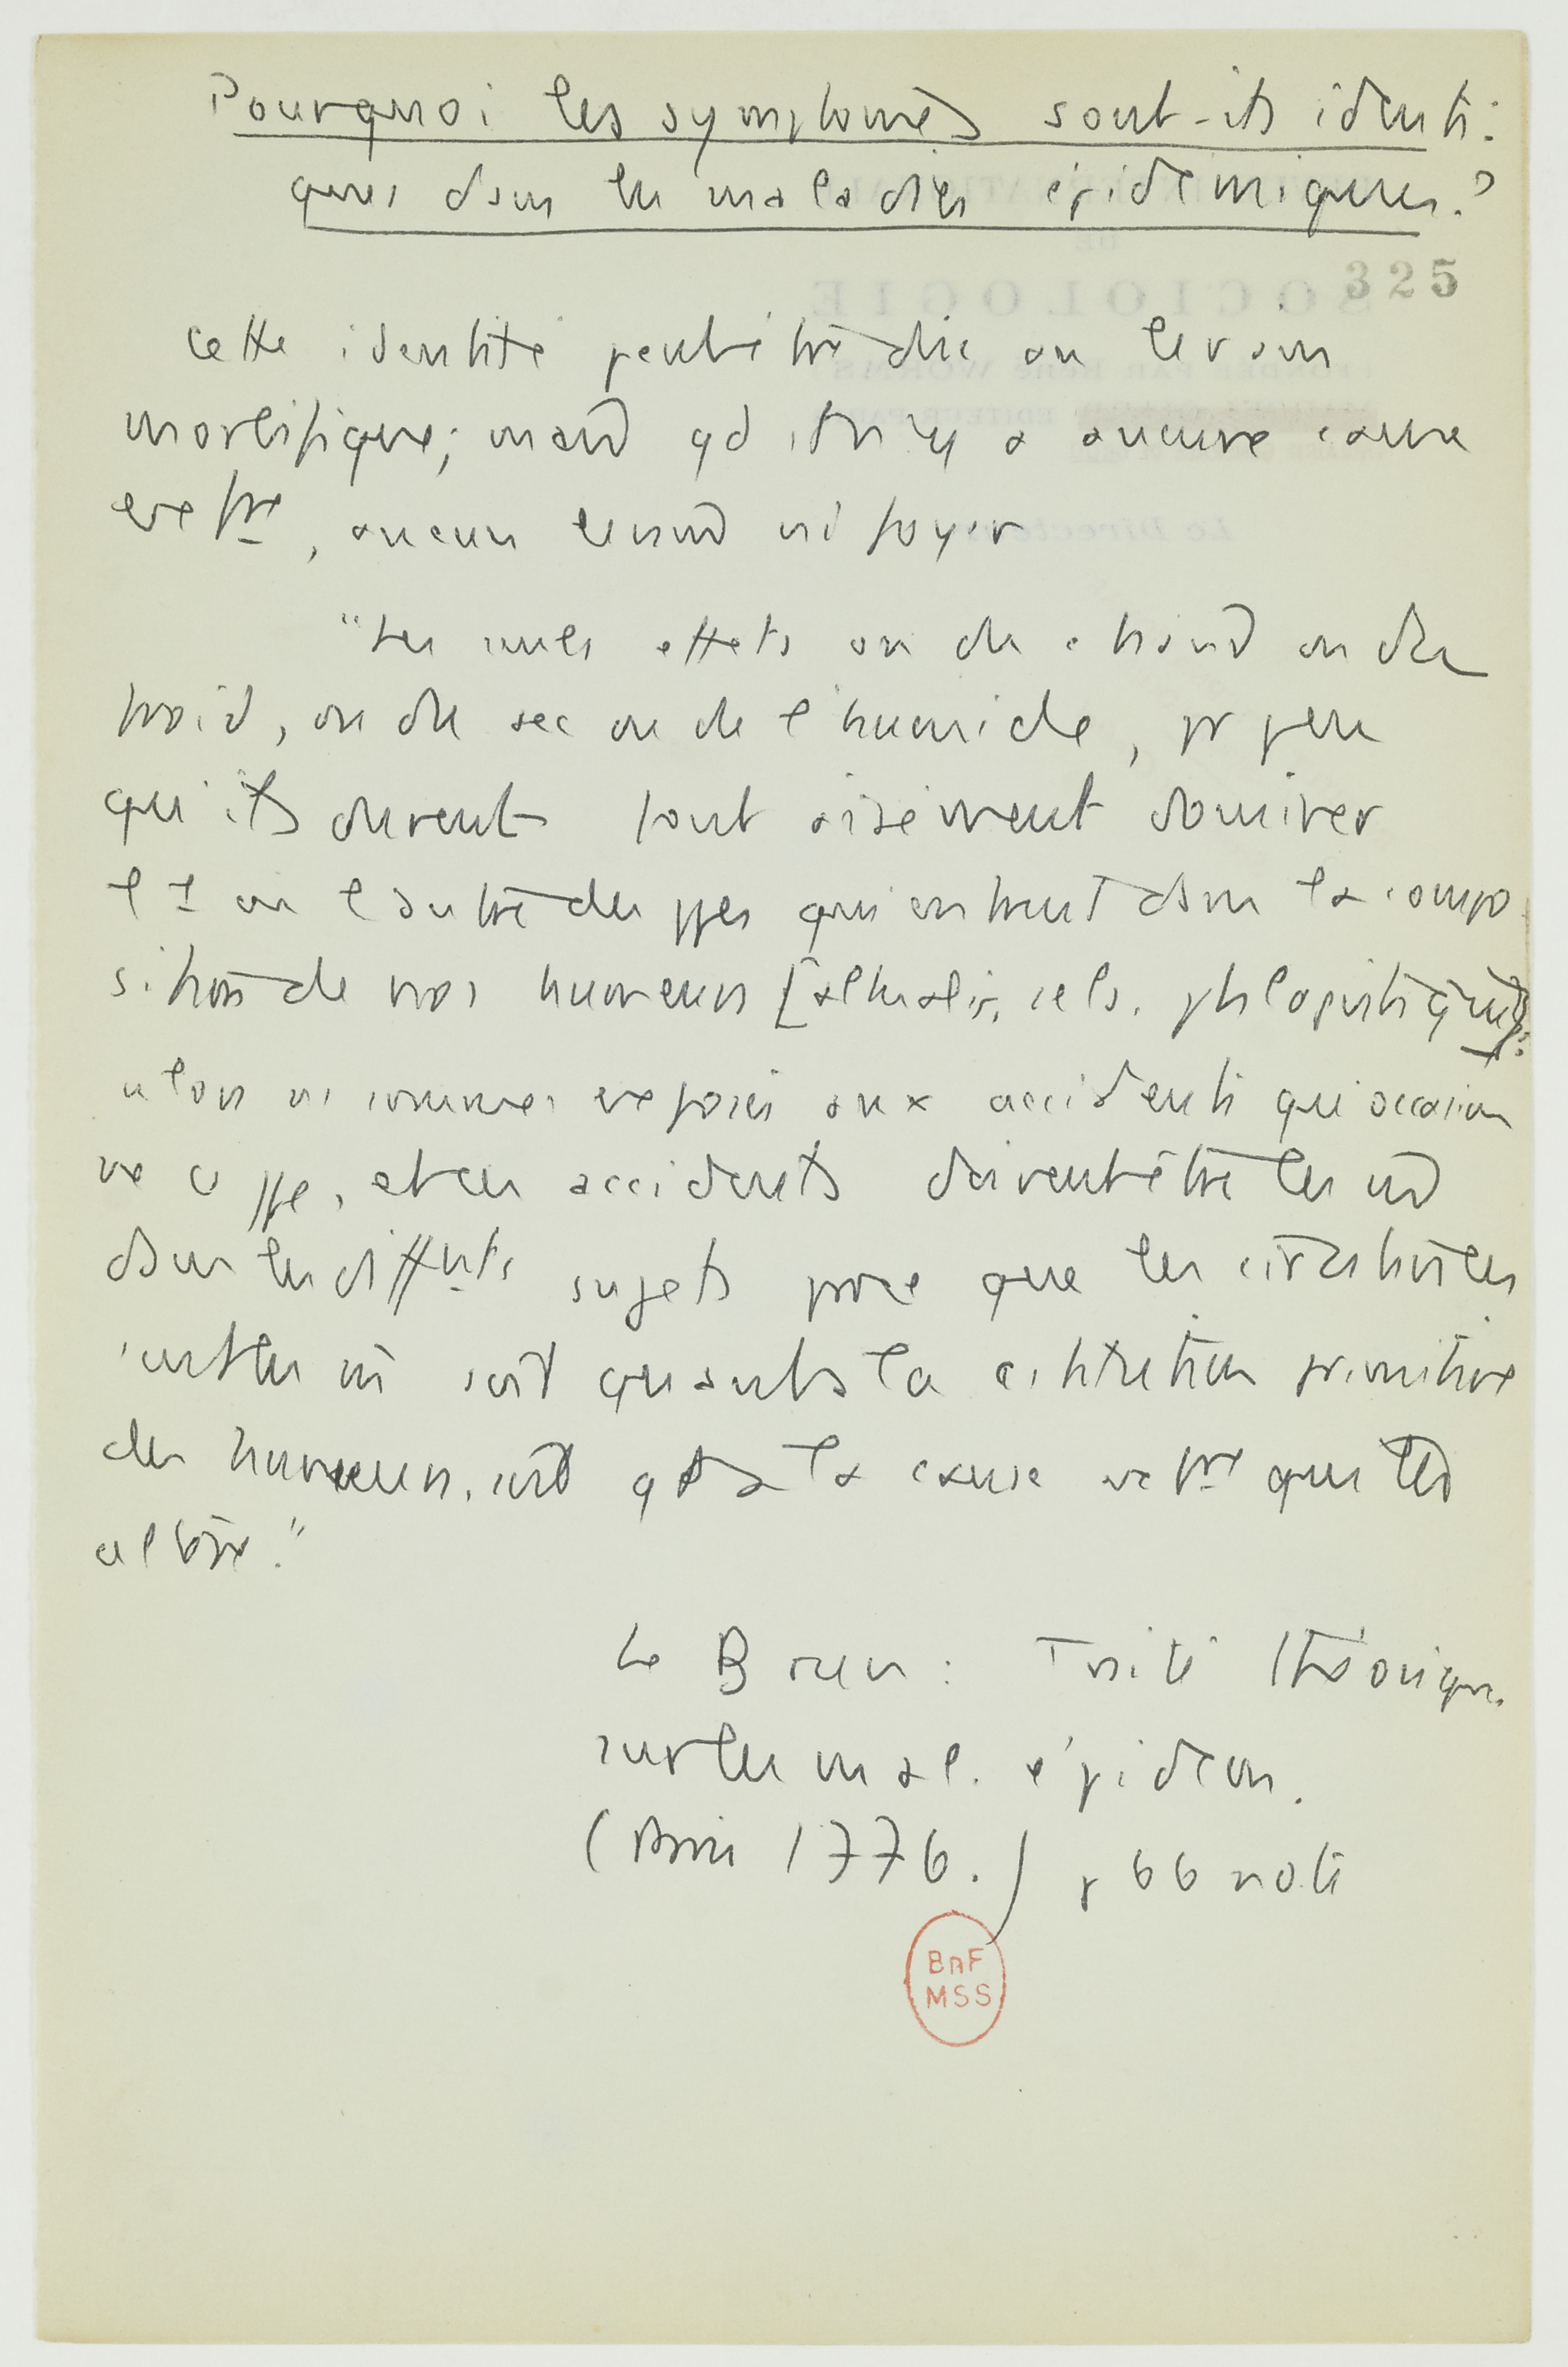 Pourquoi les symptomes sont-ils identi-
ques dans les maladies épidémiques ?
325
Cette identité peut être due au levain
morbifique ; mais qd il n'y a aucune cause
ext^re, aucun levain ni foyer
"Les seuls effets ou du chaud ou du
froid, ou du sec ou de l'humide, pr peu
qu'ils durent font aisément dominer
l'1 ou l'autre des ppes qui entrent dans la compo
sition de nos humeurs [alkalis, sels, phlogistique]
alors ns sommes exposés aux accidents qui occasion
ne ce ppe, et ces accidents doivent être les m̂
dans les diff^nts sujets que les
sont les m̂ soit quant à la primitive
des humeurs, soit qt à la cause ext^re qui les
altère."
Le Brun : Traité théorique
sur les mal. épidém.
(Paris 1776.) p 66 note
BnF
MSS